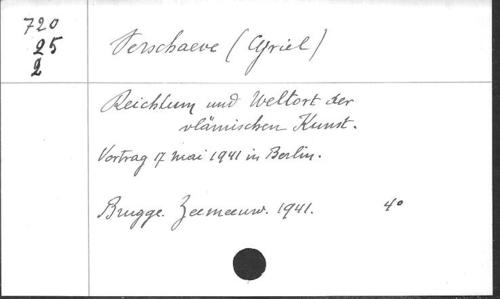 720
25
2
Verschaeve (Cyriel)
Reichtum und Weltort der
vlämischen Kunst.
Vortrag 17 mai 1941 in Berlin.
Brugge. Zeemeeuw. 1941. 4°